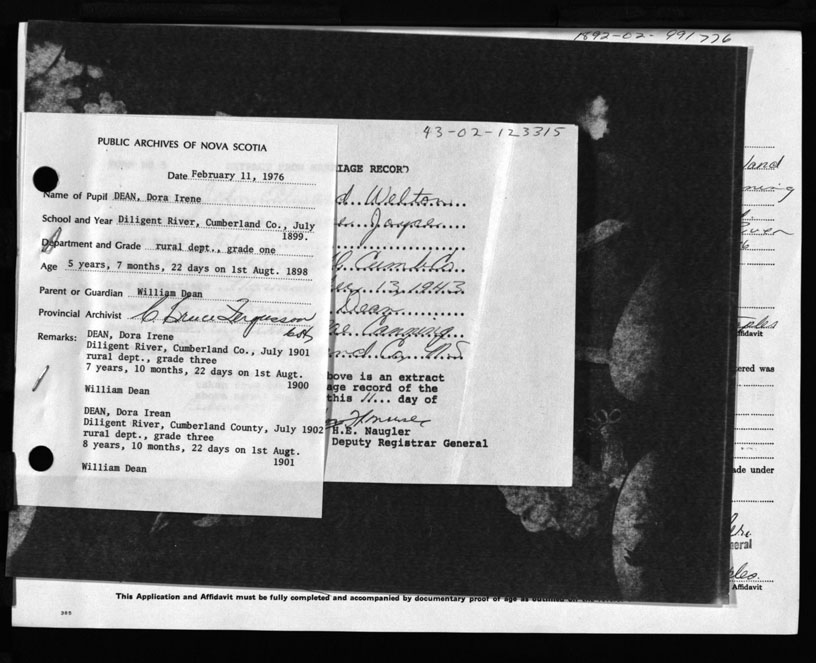 1892-02-991776
43-02-123315
PUBLIC ARCHIVES OF NOVA SCOTIA
Date February 11, 1976
Name of Pupil DEAN, Dora Irene
School and Year Diligent River, Cumberland Co., July
1899.
Department and Grade rural dept., grade one
Age 5 years, 7 months, 22 days on 1st Augt. 1898
Parent or Guardian William Dean
Provincial Archivist C. Bruce Fergusson
Remarks: DEAN, Dora Irene
Diligent River, Cumberland Co., July 1901
rural dept., grade three
7 years, 10 months, 22 days on 1st Augt.
1900
William Dean
DEAN, Dora Irean
Diligent River, Cumberland County, July 1902
rural dept., grade three
8 years, 10 months, 22 days on 1st Augt.
1901
William Dean
IAGE RECORD
d Welton
Jayne
Cumb. Co.
13, 1943
Dean
Canning
nd Co. N.S.
bove is an extract
age record of the
this 11... day of
H.E. Naugler
Deputy Registrar General
land
ning
River
ples
ffidavit
ered was
ade under
eral
ples
Affidavit
This Application and Affidavit must be fully completed and accompanied by documentary proof of age as outlined on the